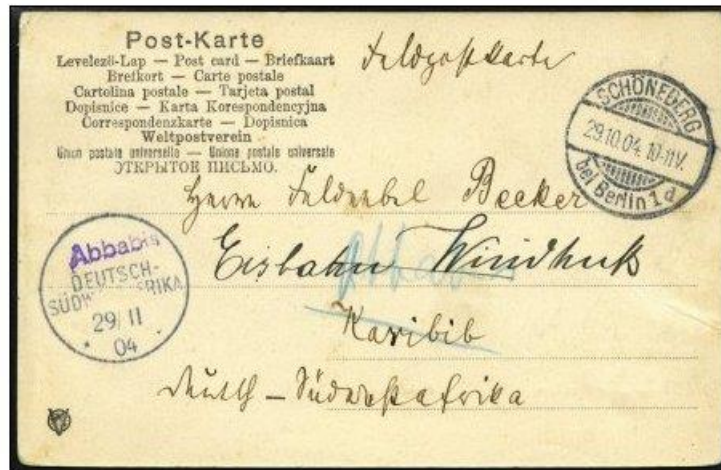 Post-Karte
Levelező-Lap — Post card — Briefkaart
Brefkort — Carte postale
Cartolina postale — Tarjeta postal
Dopisnice — Karta Korespondencyjna
Correspondenzkarte — Dopisnica
Weltpostverein
Union postale universelle — Unione postale universale
ОТКРЫТОЕ ПИСЬМО.
Feldpostkarte
SCHÖNEBERG
29.10.04. 10-11V.
bei Berlin 1 d
Herrn Feldwebel Becker
Eisbahn Windhuk
Karibib
Deutsch-Südwestafrika
Abbabis
DEUTSCH-
SÜDWESTAFRIKA
29/11
04